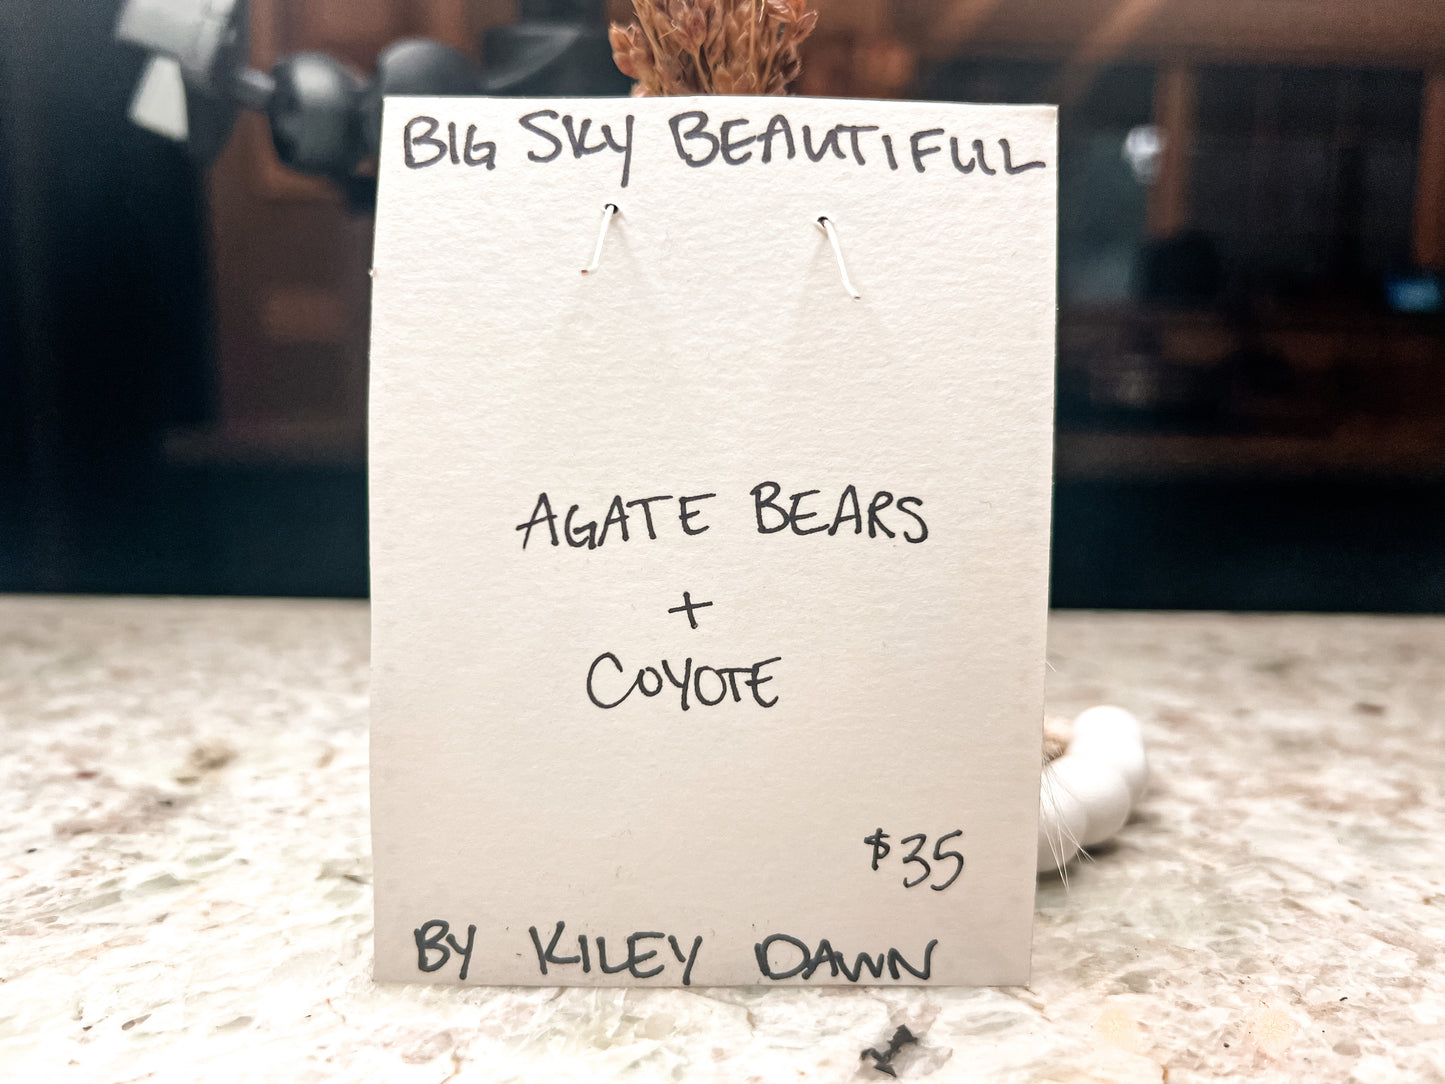 BIG SKY BEAUTIFUL
AGATE BEARS
+
COYOTE
$35
BY KILEY DAWN